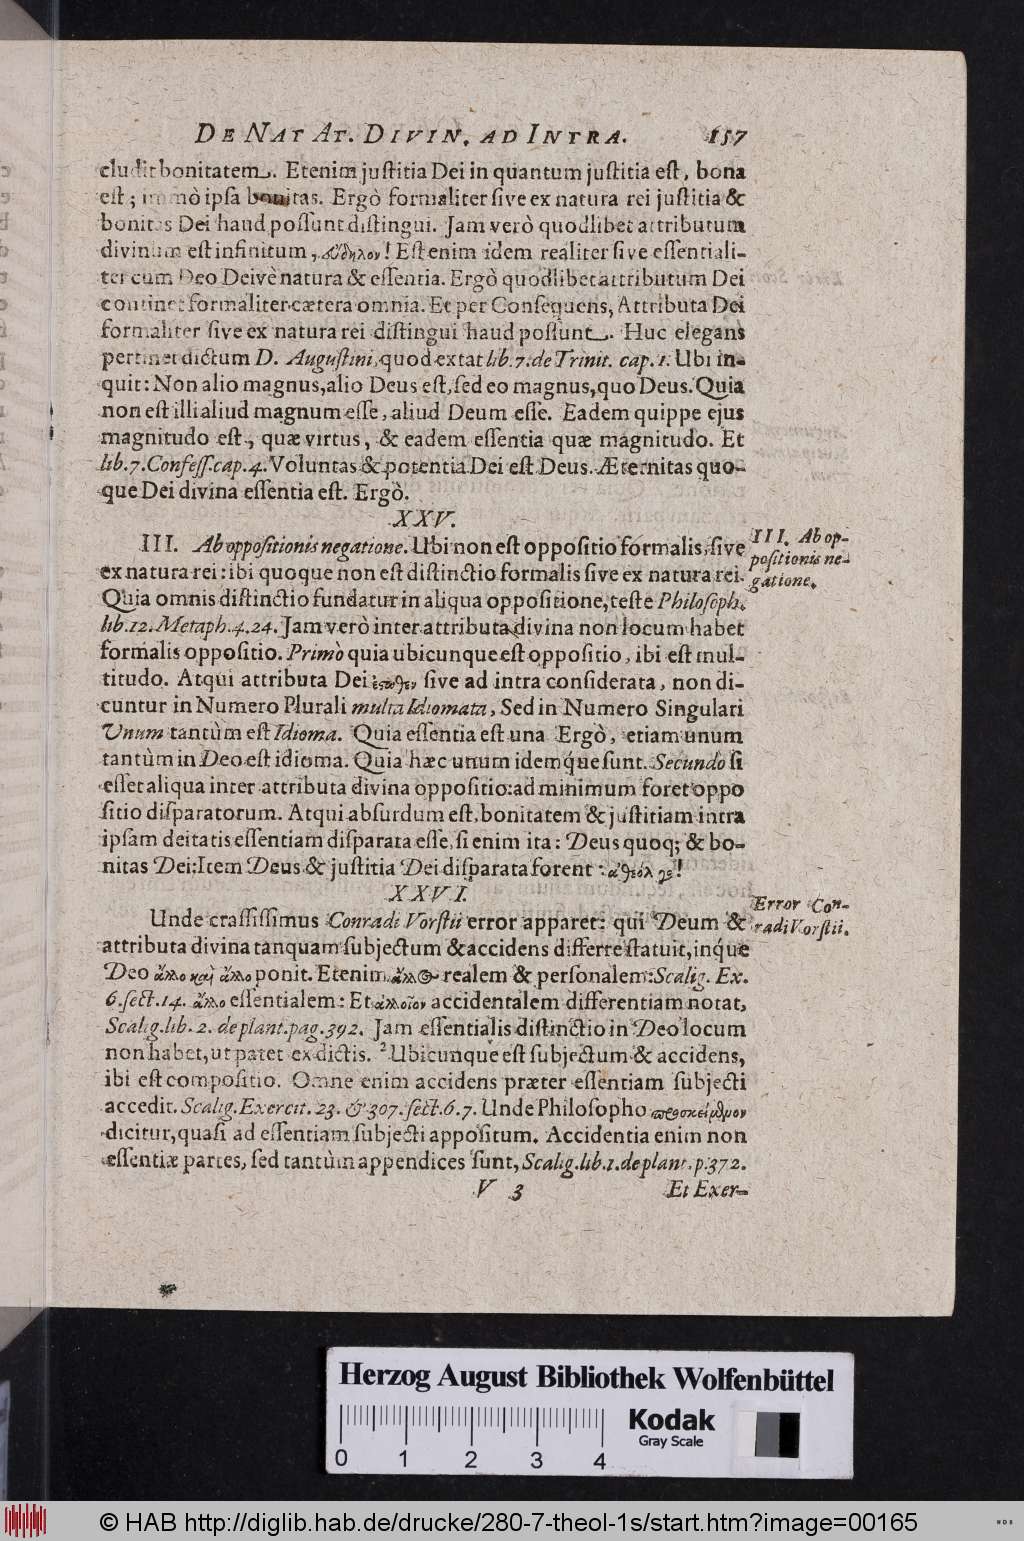 DE NAT AT. DIVIN. AD INTRA. 157
cludit bonitatem. Etenim juſtitia Dei in quantum juſtitia eſt, bona
eſt; immò ipſa bonitas. Ergò formaliter ſive ex natura rei juſtitia &
bonitas Dei haud poſſunt diſtingui. Jam verò quodlibet attributum
divinum eſt infinitum, ! Eſt enim idem realiter ſive eſſentiali-
ter cum Deo Deivè natura & eſſentia. Ergò quodlibet attributum Dei
continet formaliter cætera omnia. Et per Conſequens, Attributa Dei
formaliter ſive ex natura rei diſtingui haud poſſunt. Huc elegans
pertinet dictum D. Auguſtini, quod extat lib. 7. de Trinit. cap. 1. Ubi in-
quit: Non alio magnus, alio Deus eſt, ſed eo magnus, quo Deus. Quia
non eſt illi aliud magnum eſſe, aliud Deum eſſe. Eadem quippe ejus
magnitudo eſt, quæ virtus, & eadem eſſentia quæ magnitudo. Et
lib. 7. Confeſſ. cap. 4. Voluntas & potentia Dei eſt Deus. Æternitas quo-
que Dei divina eſſentia eſt. Ergò.
XXV.
III. Ab oppoſitionis negatione. Ubi non eſt oppoſitio formalis, ſive
ex natura rei: ibi quoque non eſt diſtinctio formalis ſive ex natura rei.
Quia omnis diſtinctio fundatur in aliqua oppoſitione, teſte Philoſoph.
lib. 12. Metaph. 4. 24. Jam verò inter attributa divina non locum habet
formalis oppoſitio. Primò quia ubicunque eſt oppoſitio, ibi eſt mul-
titudo. Atqui attributa Dei ἔσωθεν ſive ad intra conſiderata, non di-
cuntur in Numero Plurali multa Idiomata, Sed in Numero Singulari
Unum tantùm eſt Idioma. Quia eſſentia eſt una Ergò, etiam unum
tantùm in Deo eſt idioma. Quia hæc unum idemq́ue ſunt. Secundo ſi
eſſet aliqua inter attributa divina oppoſitio: ad minimum foret oppo
ſitio diſparatorum. Atqui abſurdum eſt, bonitatem & juſtitiam intra
ipſam deitatis eſſentiam diſparata eſſe, ſi enim ita: Deus quoq; & bo-
nitas Dei: Item Deus & juſtitia Dei diſparata forent: !
XXVI.
Unde craſſiſſimus Conradi Vorſtii error apparet: qui Deum &
attributa divina tanquam ſubjectum & accidens differre ſtatuit, inq́ue
Deo ἄλλο καὶ ἄλλο ponit. Etenim ἄλλος realem & perſonalem: Scalig. Ex.
6. ſect. 14. ἄλλο eſſentialem: Et ἀλλοῖον accidentalem differentiam notat,
Scalig. lib. 2. de plant. pag. 392. Jam eſſentialis diſtinctio in Deo locum
non habet, ut patet ex dictis. ² Ubicunque eſt ſubjectum & accidens,
ibi eſt compoſitio. Omne enim accidens præter eſſentiam ſubjecti
accedit. Scalig. Exercit. 23. & 307. ſect. 6. 7. Unde Philoſopho προσκείμενον
dicitur, quaſi ad eſſentiam ſubjecti appoſitum. Accidentia enim non
eſſentiæ partes, ſed tantùm appendices ſunt, Scalig. lib. 1. de plant. p. 372.
V 3 Et Exer-
III. Ab op-
poſitionis ne-
gatione.
Error Con-
radi Vorſtii.
Herzog August Bibliothek Wolfenbüttel
0 1 2 3 4
Kodak
Gray Scale
© HAB http://diglib.hab.de/drucke/280-7-theol-1s/start.htm?image=00165